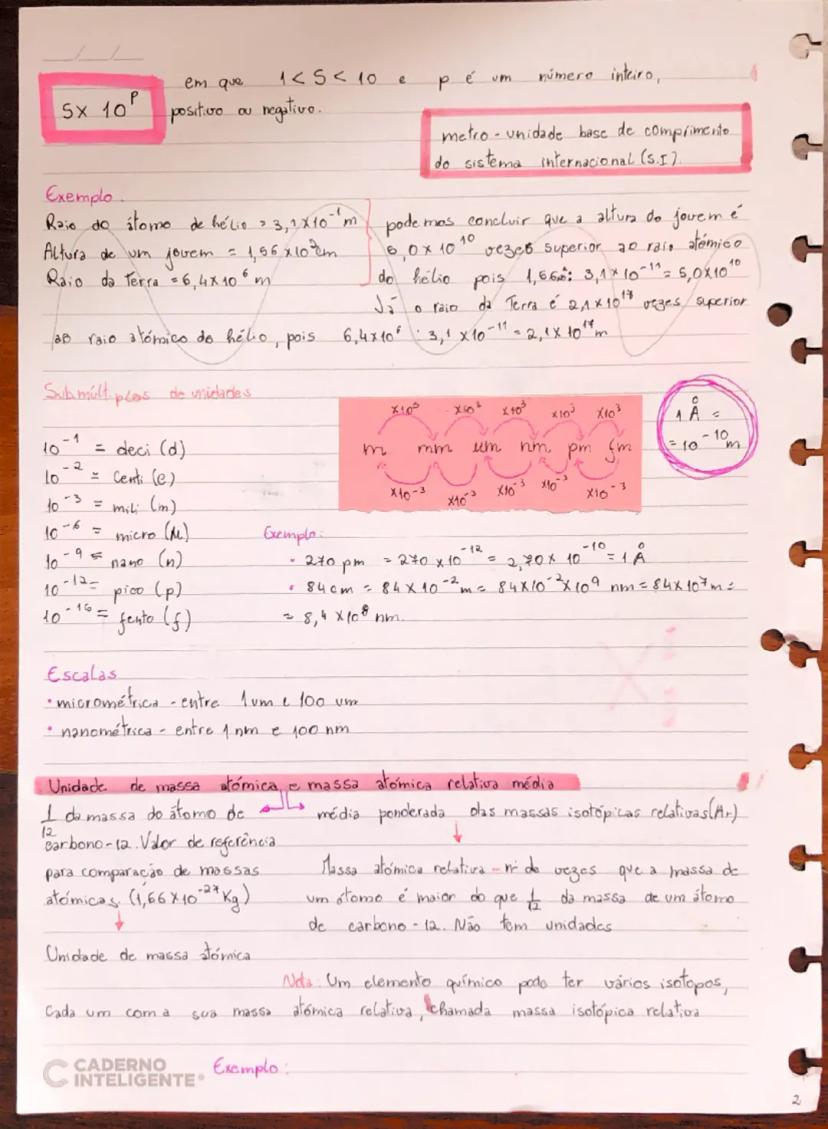 em que 1 < 5 < 10 e p é um número inteiro,
5x 10^p positivo ou negativo.
metro - unidade base de comprimento
do sistema internacional (S.I)
Exemplo.
Raio do átomo de hélio = 3,1x10^-1 m
Altura de um jovem = 1,56x10^2 cm
Raio da Terra = 6,4x10^6 m
podemos concluir que a altura do jovem é
5,0x10^10 vezes superior ao raio atómico
do hélio pois : 3,1x10^-11 = 5,0x10^10
Já o raio da Terra é 2,1x10^17 vezes superior
ao raio atómico do hélio, pois 6,4x10^6 : 3,1x10^-11 = 2,1x10^17 m
Submúltiplos de unidades
x10^3 x10^3 x10^3 x10^3 x10^3
m mm um nm pm fm
x10^-3 x10^-3 x10^-3 x10^-3 x10^-3
1 Å =
= 10^-10 m
10^-1 = deci (d)
10^-2 = Centi (c)
10^-3 = mili (m)
10^-6 = micro (M)
10^-9 = nano (n)
10^-12 = pico (p)
10^-16 = fento (f)
Exemplo:
• 270 pm = 270x10^-12 = 2,70x 10^-10 = 1 Å
• 84 cm = 84x10^-2 m = 84x10^-2 x10^9 nm = 84x10^7 m =
= 8,4 x10^8 nm.
Escalas
• micrométrica - entre 1 um e 100 um
• nanométrica - entre 1 nm e 100 nm
Unidade de massa atómica e massa atómica relativa média
1/12 da massa do átomo de
carbono-12. Valor de referência
para comparação de massas
atómicas. (1,66x10^-27 Kg)
Unidade de massa atómica
média ponderada das massas isotópicas relativas (Ar)
Massa atómica relativa - nº de vezes que a massa de
um átomo é maior do que 1/12 da massa de um átomo
de carbono-12. Não tem unidades
Nota: Um elemento químico pode ter vários isotopos,
Cada um com a sua massa atómica relativa, chamada massa isotópica relativa
CADERNO
INTELIGENTE®
Exemplo:
2